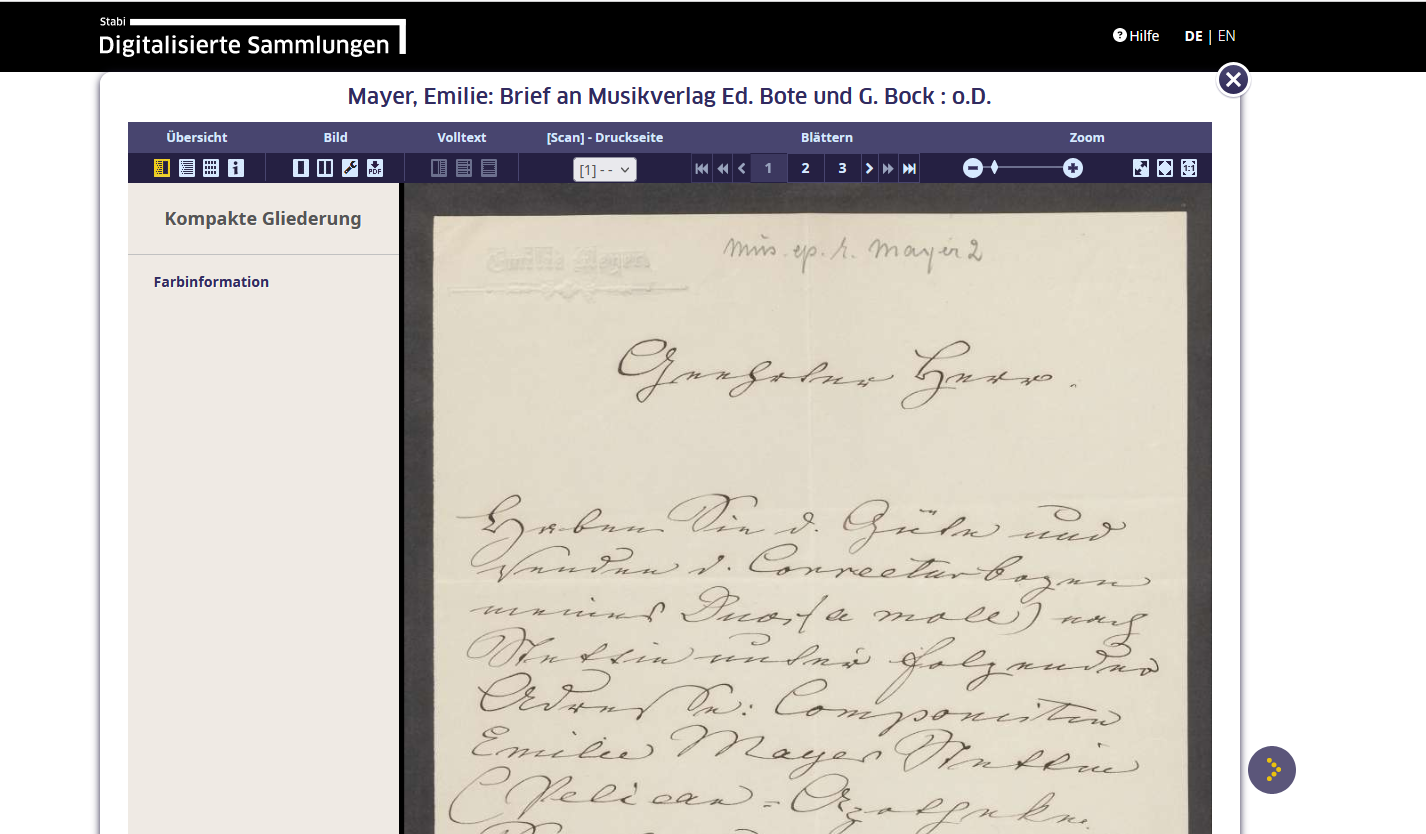 Stabi
Digitalisierte Sammlungen
Hilfe DE | EN
Mayer, Emilie: Brief an Musikverlag Ed. Bote und G. Bock : o.D.
Übersicht Bild Volltext [Scan] - Druckseite Blättern Zoom
PDF [1] - - 1 2 3 1:1
Kompakte Gliederung
Farbinformation
Emilie Mayer
Mus. ep. E. Mayer 2
Geehrter Herr.
Haben Sie d. Güte und
senden d. Correcturbogen
meines Duos (a moll) nach
Stettin unter folgender
Adresse: Componistin
Emilie Mayer Stettin
(Pelican = Apotheke.